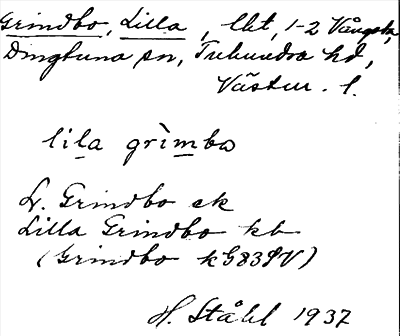 Grindbo, Lilla, lht, 1-2 Vångsta,
Dingtuna sn, Tuhundra hd,
Västm. l.
lila grìmbo
L. Grindbo ek
Lilla Grindbo kb
(Grindbo kG83SV)
H. Ståhl 1937